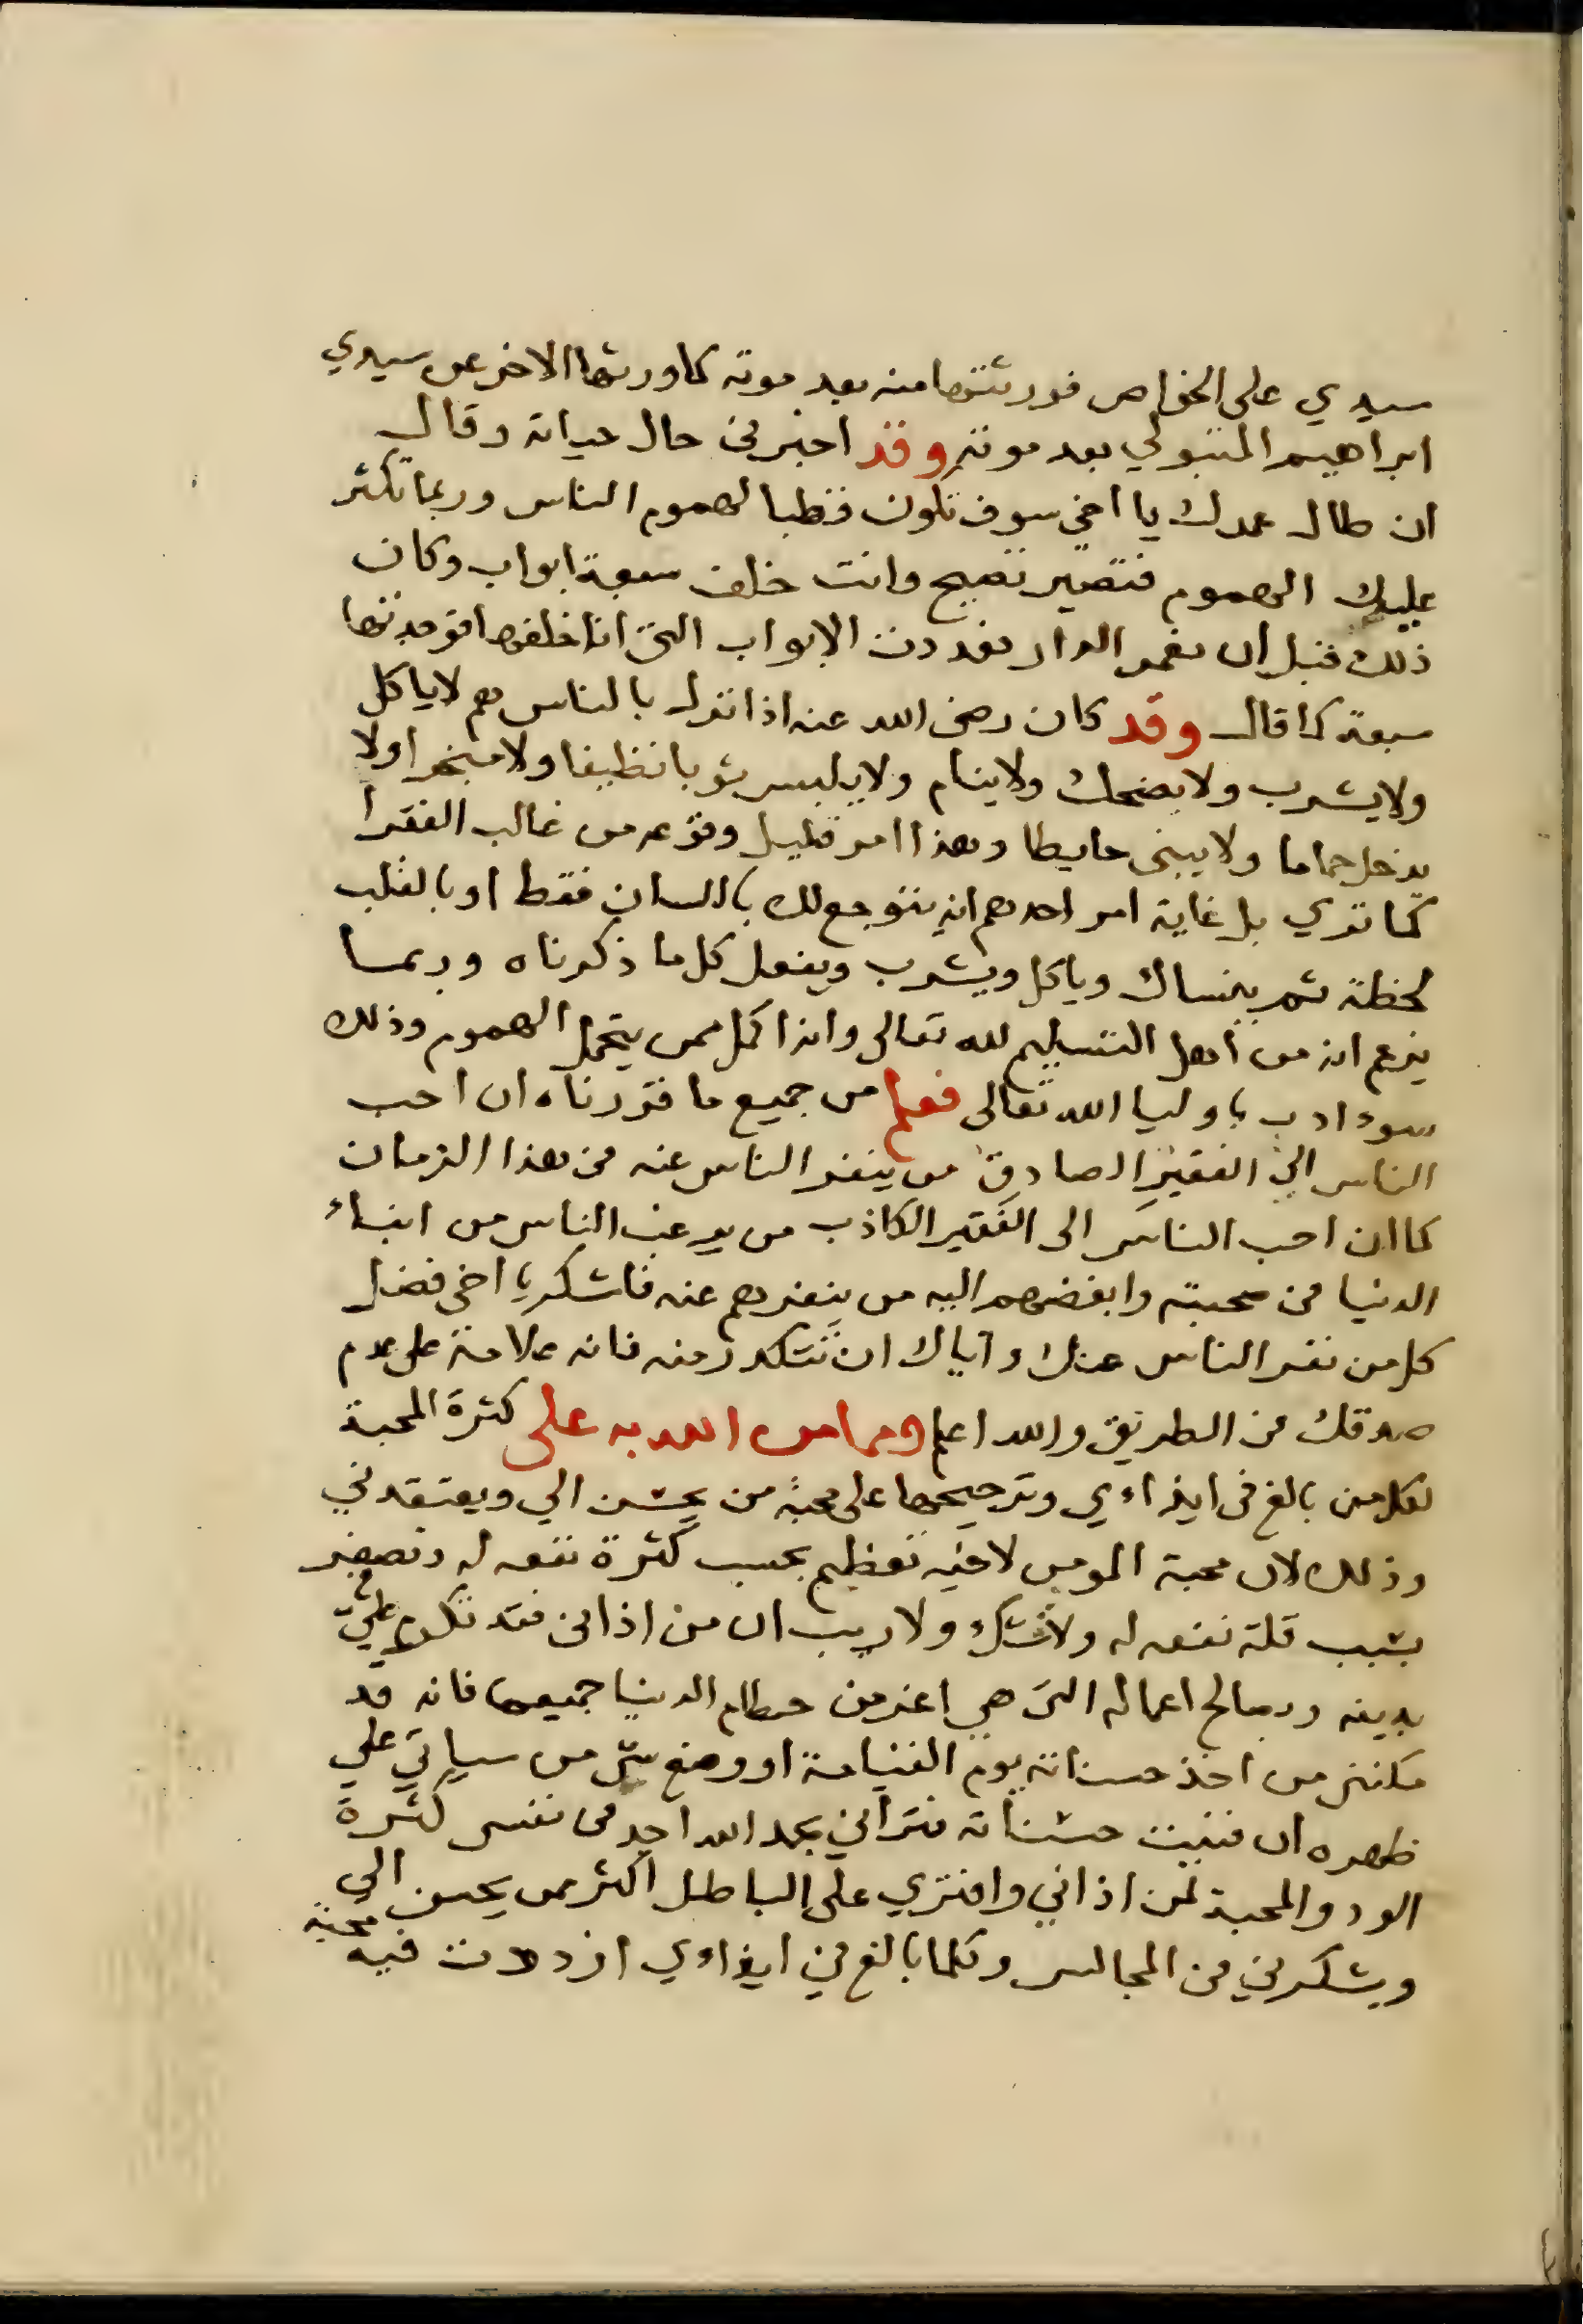 سيدي على الخواص فورثتها منه بعد موته كما ورثها الاخر عن سيدي
ابراهيم المتبولي بعد موته وقد اخبرني حال حياته وقال
ان طال عمرك يا اخي سوف تكون قطبا لهموم الناس وربما تكثر
عليك الهموم فتصير تصيح وانت خلف سبعة ابواب وكان
ذلك قبل ان نعمر الدار فعددت الابواب التي انا خلفها فوجدتها
سبعة كما قال وقد كان رضي الله عنه اذا نزل بالناس هم لا ياكل
ولا يشرب ولا يضحك ولا ينام ولا يلبس ثوبا نظيفا ولا مبخرا ولا
يدخل حماما ولا يبنى حايطا وهذا امر قليل وقوعه من غالب الفقرا
كما تري بل غاية امر احدهم انه يتوجع لك باللسان فقط او بالقلب
لحظة ثم ينساك وياكل ويشرب ويفعل كل ما ذكرناه وربما
يزعم انه من اهل التسليم لله تعالى وانه اكمل ممن يتحمل الهموم وذلك
سوء ادب باوليا الله تعالى فعلم من جميع ما قررناه ان احب
الناس الي الفقير الصادق من ينفر الناس عنه في هذا الزمان
كما ان احب الناس الى الفقير الكاذب من يرغب الناس من ابناء
الدنيا في صحبته وابغضهم اليه من ينفرهم عنه فاشكر يا اخي فضل
كل من نفر الناس عنك واياك ان تتكدر منه فانه علامة على عدم
صدقك في الطريق والله اعلم ومما من الله به على كثرة المحبة
لكل من بالغ في ايذاءي وترجيحها على محبة من يحسن الي ويعتقدني
وذلك لان محبة المومن لاخيه تعظم بحسب كثرة نفعه له وتصغر
بسبب قلة نفعه له ولا شك ولا ريب ان من اذاني فقد تكرم علي
بدينه وبصالح اعماله التي هي اعز من حطام الدنيا جميعها فانه قد
مكنني من اخذ حسناته يوم القيامة او وضع شي من سياتي علي
ظهره ان فنيت حسناته فتراني بحمد الله اجد في نفسي كثرة
الود والمحبة لمن اذاني وافتري على الباطل اكثر ممن يحسن الي
ويشكرني في المجالس وكلما بالغ في ايذاءي ازددت فيه محبة